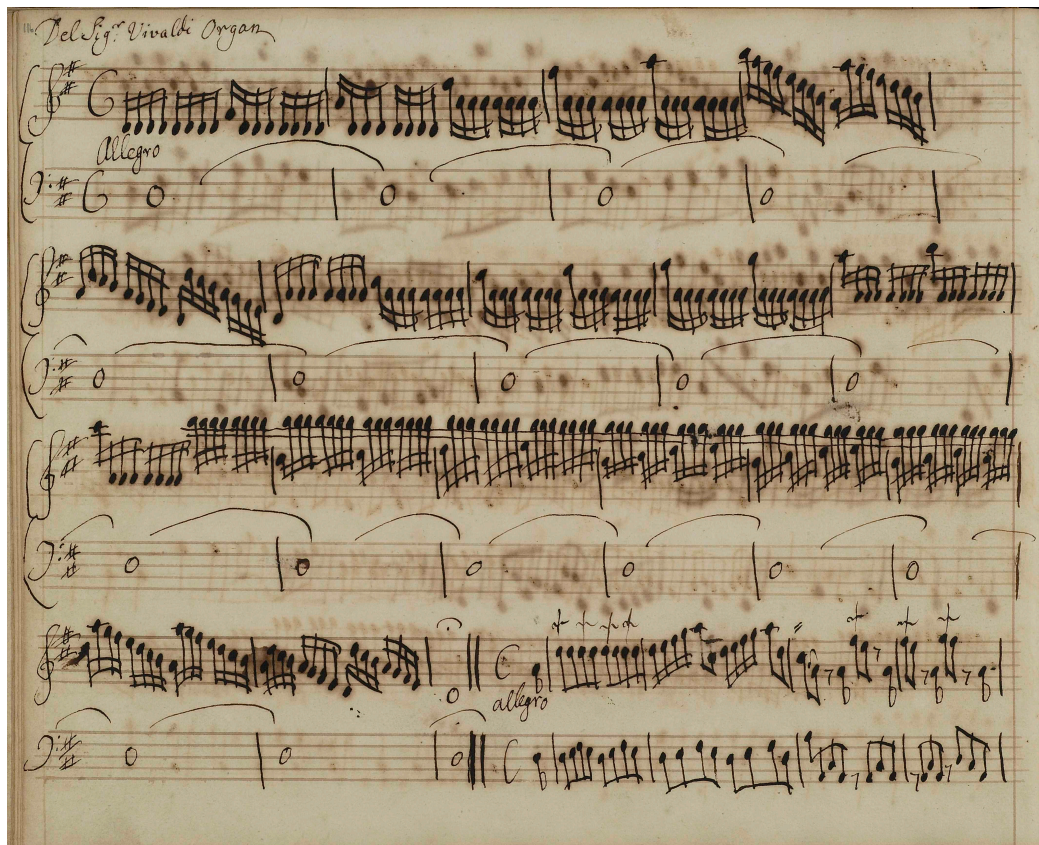 Del Sigr. Vivaldi Organ
Allegro
allegro